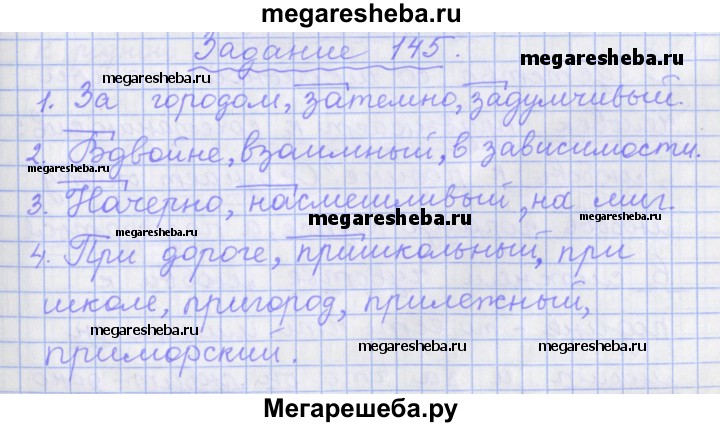 megaresheba.ru
Задание 145.
megaresheba.ru
megaresheba.ru
1. За городом, затемно, задумчивый.
2. Вдвойне, взаимный, в зависимости.
megaresheba.ru
megaresheba.ru
3. Начерно, насмешливый, на миг.
megaresheba.ru
megaresheba.ru
4. При дороге, пришкольный, при
megaresheba.ru
школе, пригород, прилежный,
megaresheba.ru
приморский.
megaresheba.ru
megaresheba.ru
Мегарешеба.ру